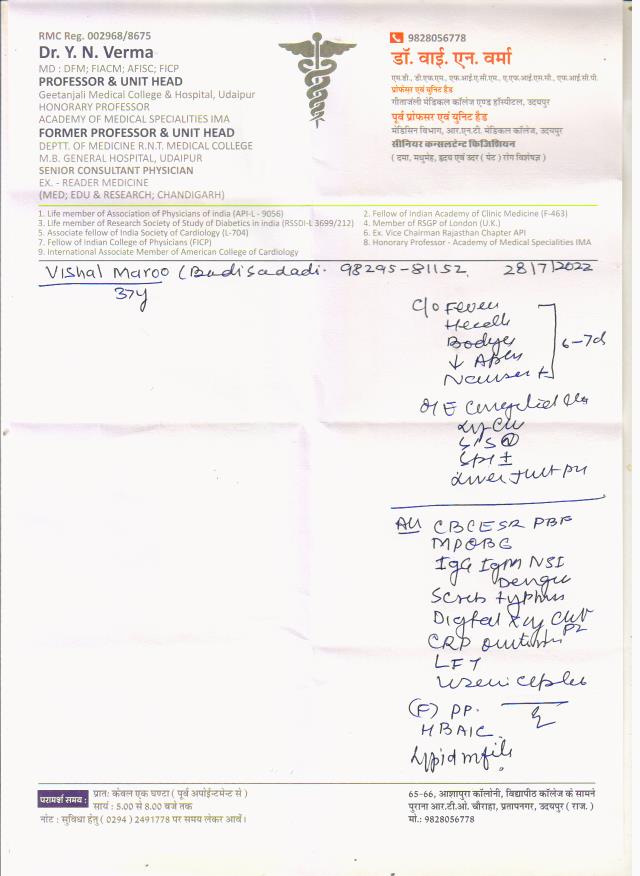 RMC Reg. 002968/8675
Dr. Y. N. Verma
MD : DFM; FIACM; AFISC; FICP
PROFESSOR & UNIT HEAD
Geetanjali Medical College & Hospital, Udaipur
HONORARY PROFESSOR
ACADEMY OF MEDICAL SPECIALITIES IMA
FORMER PROFESSOR & UNIT HEAD
DEPTT. OF MEDICINE R.N.T. MEDICAL COLLEGE
M.B. GENERAL HOSPITAL, UDAIPUR
SENIOR CONSULTANT PHYSICIAN
EX. - READER MEDICINE
(MED; EDU & RESEARCH; CHANDIGARH)
9828056778
डॉ. वाई. एन. वर्मा
एम.डी., डी.एफ.एम., एफ.आई.ए.सी.एम., ए.एफ.आई.एस.सी., एफ.आई.सी.पी.
प्रोफेसर एवं यूनिट हैड
गीतांजली मेडिकल कॉलेज एण्ड हॉस्पीटल, उदयपुर
पूर्व प्रोफेसर एवं यूनिट हैड
मेडिसिन विभाग, आर.एन.टी. मेडिकल कॉलेज, उदयपुर
सीनियर कन्सलटेन्ट फिजिशियन
( दमा, मधुमेह, हृदय एवं उदर ( पेट ) रोग विशेषज्ञ )
1. Life member of Association of Physicians of india (API-L - 9056)
2. Fellow of Indian Academy of Clinic Medicine (F-463)
3. Life member of Research Society of Study of Diabetics in india (RSSDI-L 3699/212)
4. Member of RSGP of London (U.K.)
5. Associate fellow of India Society of Cardiology (L-704)
6. Ex. Vice Chairman Rajasthan Chapter API
7. Fellow of Indian College of Physicians (FICP)
8. Honorary Professor - Academy of Medical Specialities IMA
9. International Associate Member of American College of Cardiology
Vishal Maroo (Badisadadi. 98295-81152 28/7/2022
37y
C/o Fever
6-7d
O/E
Liver
CBC ESR PBF
IgG IgM NSI
Dengu
Scrub typhus
Digital Xray
CRP
LFT
(F) PP.
HBAIC
Lipid
परामर्श समय :
प्रातः केवल एक घण्टा ( पूर्व अपोईन्टमेन्ट से )
सायं : 5.00 से 8.00 बजे तक
नोट : सुविधा हेतु ( 0294 ) 2491778 पर समय लेकर आवें।
65-66, आशापुरा कॉलोनी, विद्यापीठ कॉलेज के सामने
पुराना आर.टी.ओ. चौराहा, प्रतापनगर, उदयपुर ( राज. )
मो.: 9828056778